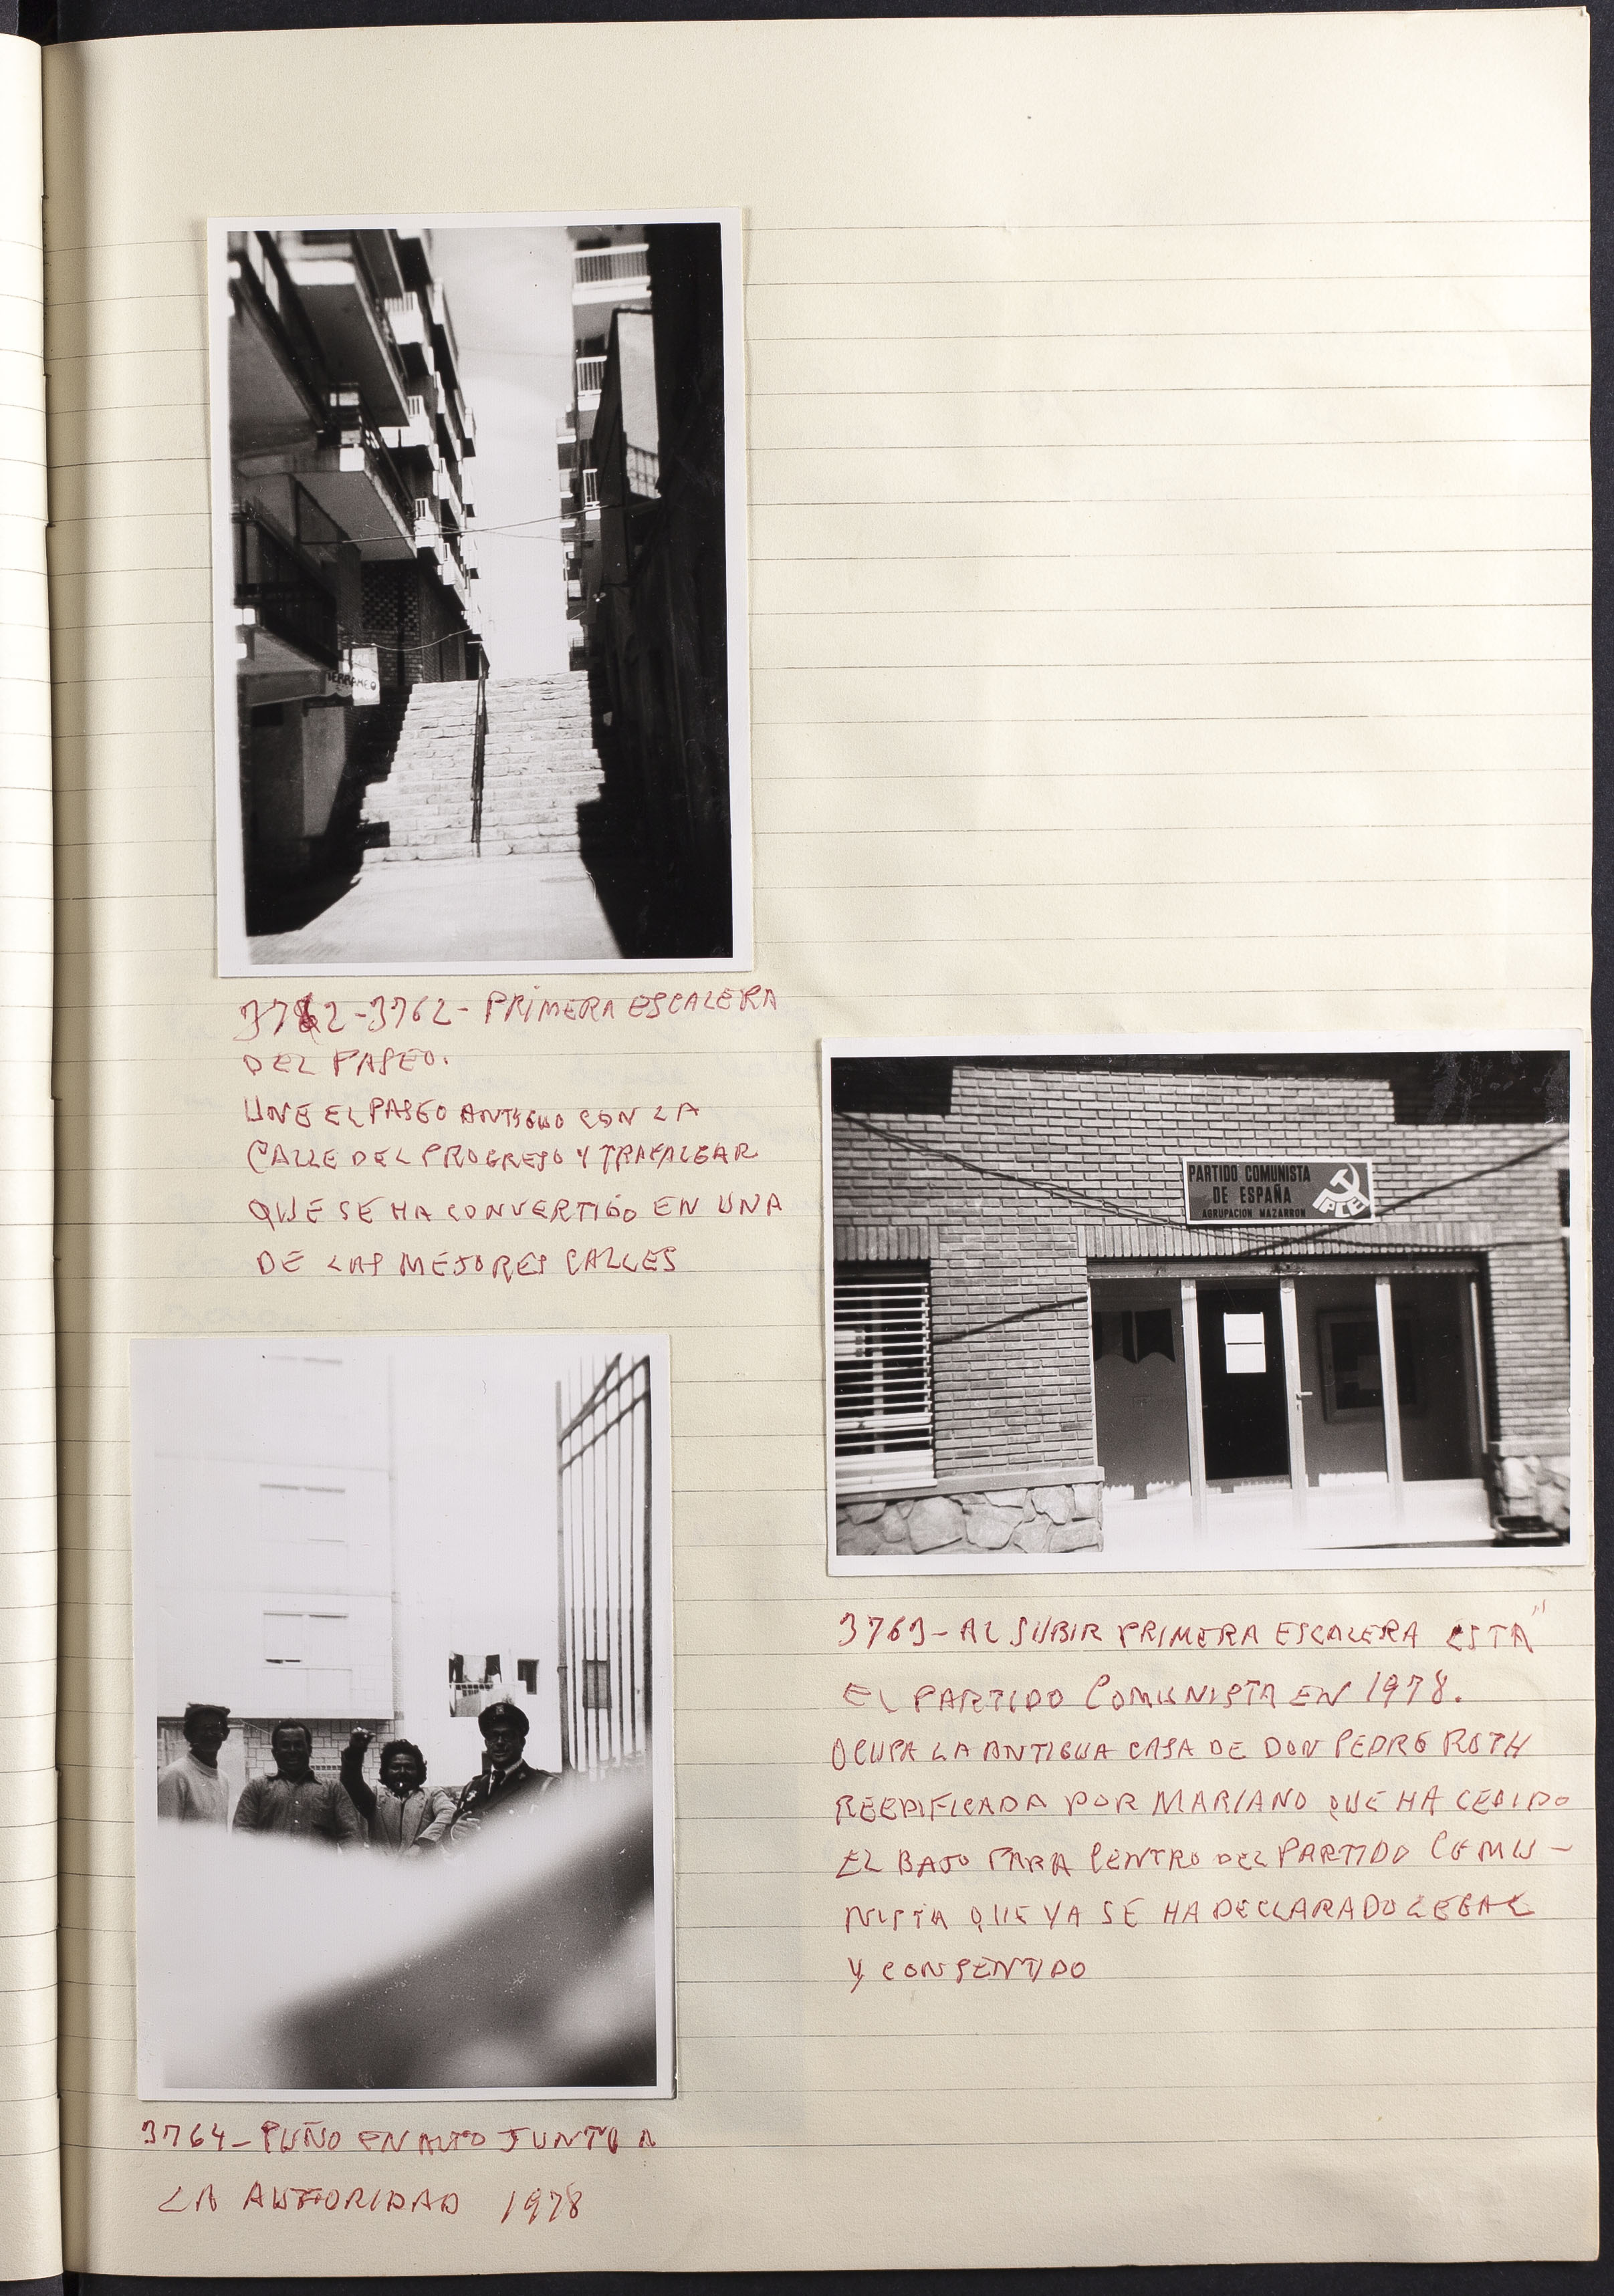 TERRAMEO
3762-3762- PRIMERA ESCALERA
DEL PASEO.
UNE EL PASEO ANTIGUO CON LA
CALLE DEL PROGRESO Y TRAFALGAR
QUE SE HA CONVERTIDO EN UNA
DE LAS MEJORES CALLES
PARTIDO COMUNISTA
DE ESPAÑA
AGRUPACION MAZARRON
PCE
3763- AL SUBIR PRIMERA ESCALERA ESTA
EL PARTIDO COMUNISTA EN 1978.
OCUPA LA ANTIGUA CASA DE DON PEDRO ROTH
REEDIFICADA POR MARIANO QUE HA CEDIDO
EL BAJO PARA CENTRO DEL PARTIDO COMU-
NISTA QUE YA SE HA DECLARADO LEGAL
Y CONSENTIDO
3764- PUÑO EN ALTO JUNTO A
LA AUTORIDAD 1978